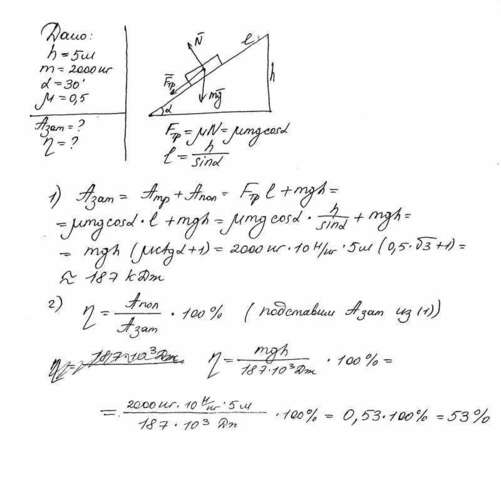 Дано:
h = 5м
m = 2000 кг
α = 30°
μ = 0,5
Aзат = ?
η = ?
N̄
l
F̄тр
mḡ
h
α
Fтр = μN = μmgcosα
l = h/sinα
1) Aзат = Aтр + Aпол = Fтр l + mgh =
= μmgcosα · l + mgh = μmgcosα · h/sinα + mgh =
= mgh (μctgα + 1) = 2000 кг · 10 Н/кг · 5м (0,5 · √3 + 1) =
≈ 187 кДж
2) η = Aпол/Aзат · 100% (подставим Aзат из (1))
η = mgh/187·10³Дж · 100% =
= 2000 кг · 10 Н/кг · 5м/187 · 10³ Дж · 100% = 0,53 · 100% = 53%